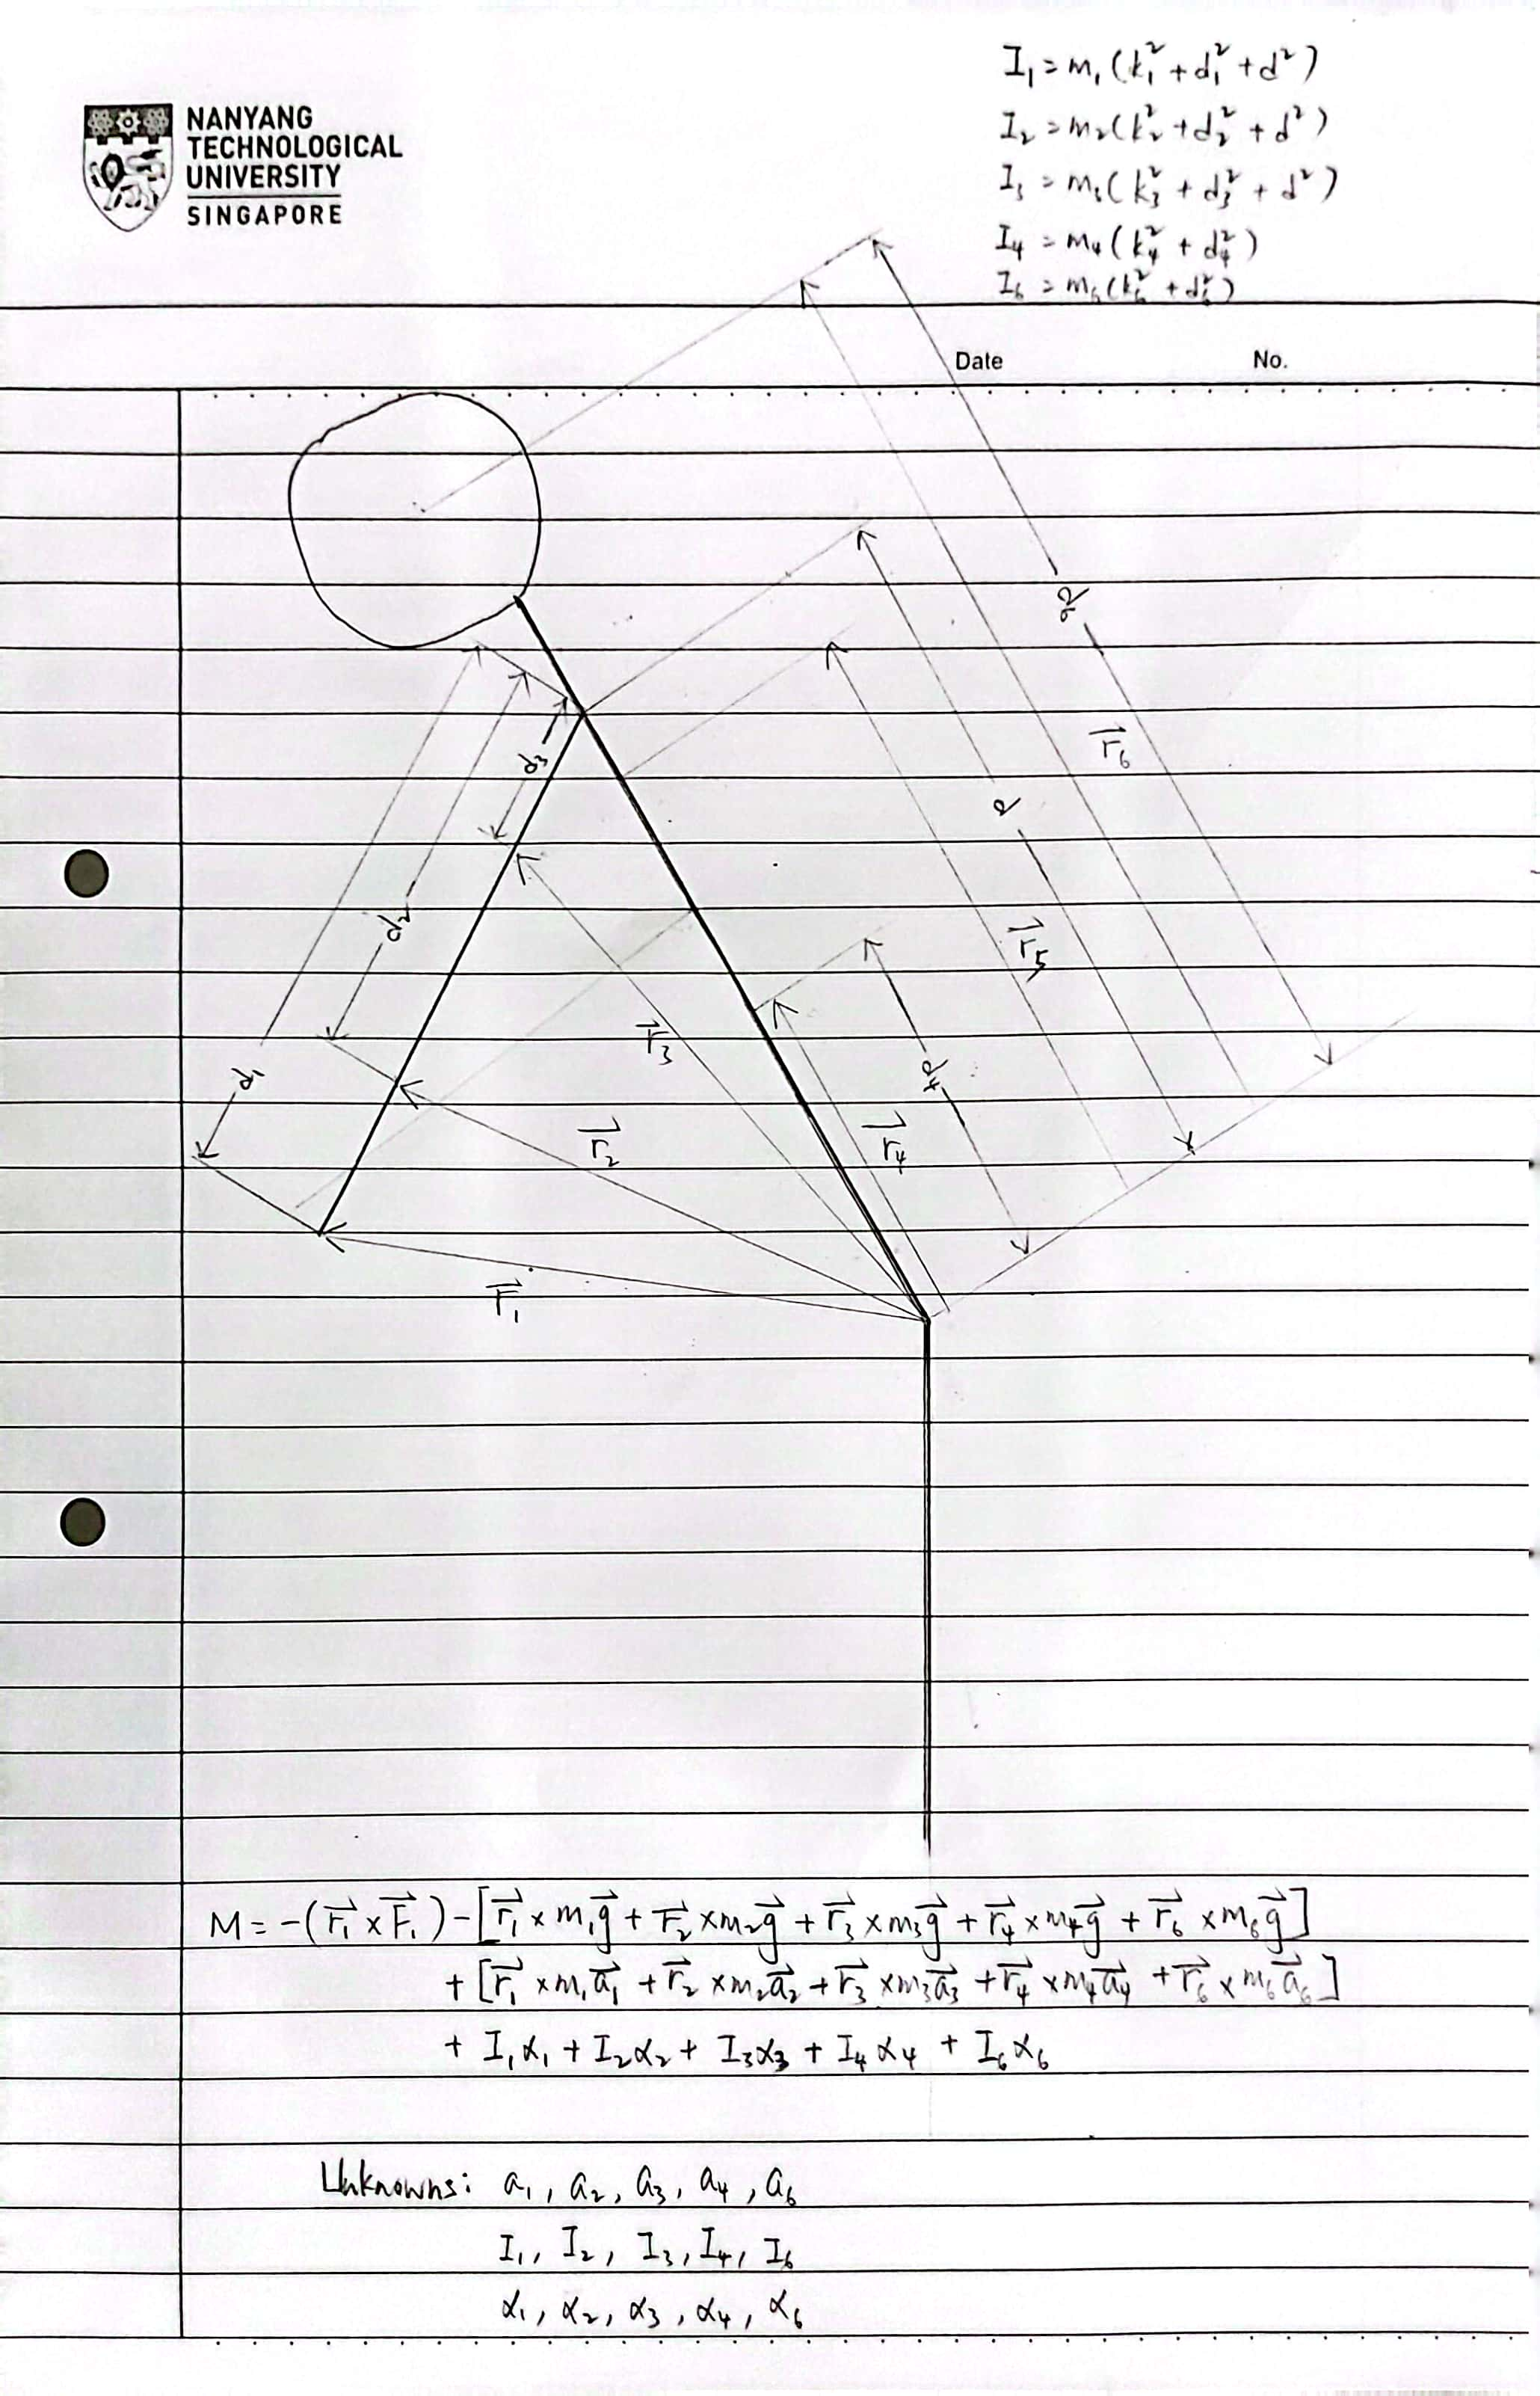 I₁ = m₁(k₁² + d₁² + d²)
I₂ = m₂(k₂² + d₂² + d²)
I₃ = m₃(k₃² + d₃² + d²)
I₄ = m₄(k₄² + d₄²)
I₆ = m₆(k₆² + d₆²)
NANYANG
TECHNOLOGICAL
UNIVERSITY
SINGAPORE
Date No.
d₆
r⃗₆
d₃
d
d₂
r⃗₅
r⃗₃
d₁
d₄
r⃗₂
r⃗₄
r⃗₁
M = -(r⃗₁ × F⃗₁) - [r⃗₁ × m₁g⃗ + r⃗₂ × m₂g⃗ + r⃗₃ × m₃g⃗ + r⃗₄ × m₄g⃗ + r⃗₆ × m₆g⃗]
+ [r⃗₁ × m₁a⃗₁ + r⃗₂ × m₂a⃗₂ + r⃗₃ × m₃a⃗₃ + r⃗₄ × m₄a⃗₄ + r⃗₆ × m₆a⃗₆]
+ I₁α₁ + I₂α₂ + I₃α₃ + I₄α₄ + I₆α₆
Unknowns: a₁, a₂, a₃, a₄, a₆
I₁, I₂, I₃, I₄, I₆
α₁, α₂, α₃, α₄, α₆